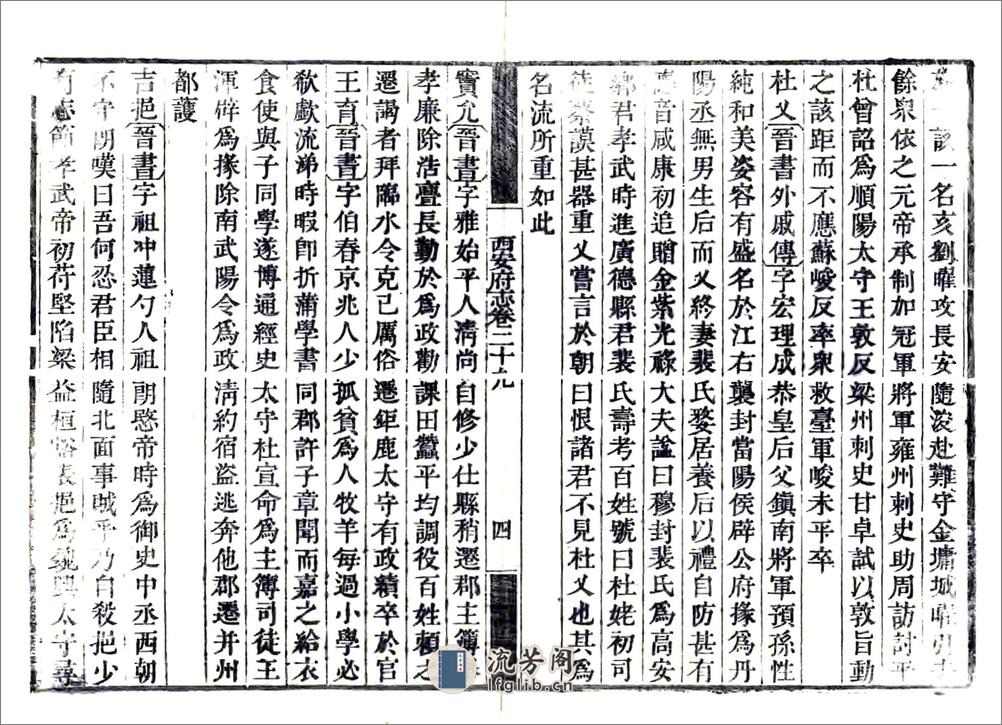 該一名亥劉曜攻長安隨浚赴難守金墉城曜引去
餘衆依之元帝承制加冠軍將軍雍州刺史助周訪討平
杜曾詔爲順陽太守王敦反梁州刺史甘卓試以敦旨動
之該距而不應蘇峻反率衆救臺軍峻未平卒
杜乂晉書外戚傳字宏理成恭皇后父鎮南將軍預孫性
純和美姿容有盛名於江右襲封當陽侯辟公府掾爲丹
陽丞無男生后而乂終妻裴氏嫠居養后以禮自防甚有
德音咸康初追贈金紫光祿大夫諡曰穆封裴氏爲高安
鄉君孝武時進廣德縣君裴氏壽考百姓號曰杜姥初司
徒蔡謨甚器重乂嘗言於朝曰恨諸君不見杜乂也其爲
名流所重如此
西安府志卷三十九
四
竇允晉書字雅始平人清尚自修少仕縣稍遷郡主簿
孝廉除浩亹長勤於爲政勸課田蠶平均調役百姓賴之
遷謁者拜臨水令克己厲俗遷鉅鹿太守有政績卒於官
王育晉書字伯春京兆人少孤貧爲人牧羊每過小學必
欷歔流涕時暇卽折蒲學書同郡許子章聞而嘉之給衣
食使與子同學遂博通經史太守杜宣命爲主簿司徒王
渾辟爲掾除南武陽令爲政清約宿盜逃奔他郡遷并州
都護
吉挹晉書字祖冲蓮勺人祖朗愍帝時爲御史中丞西朝
不守朗嘆曰吾何忍君臣相隨北面事賊乎乃自殺挹少
有志節孝武帝初苻堅陷梁益桓豁表挹爲魏興太守尋
流芳閣
lfglib.cn